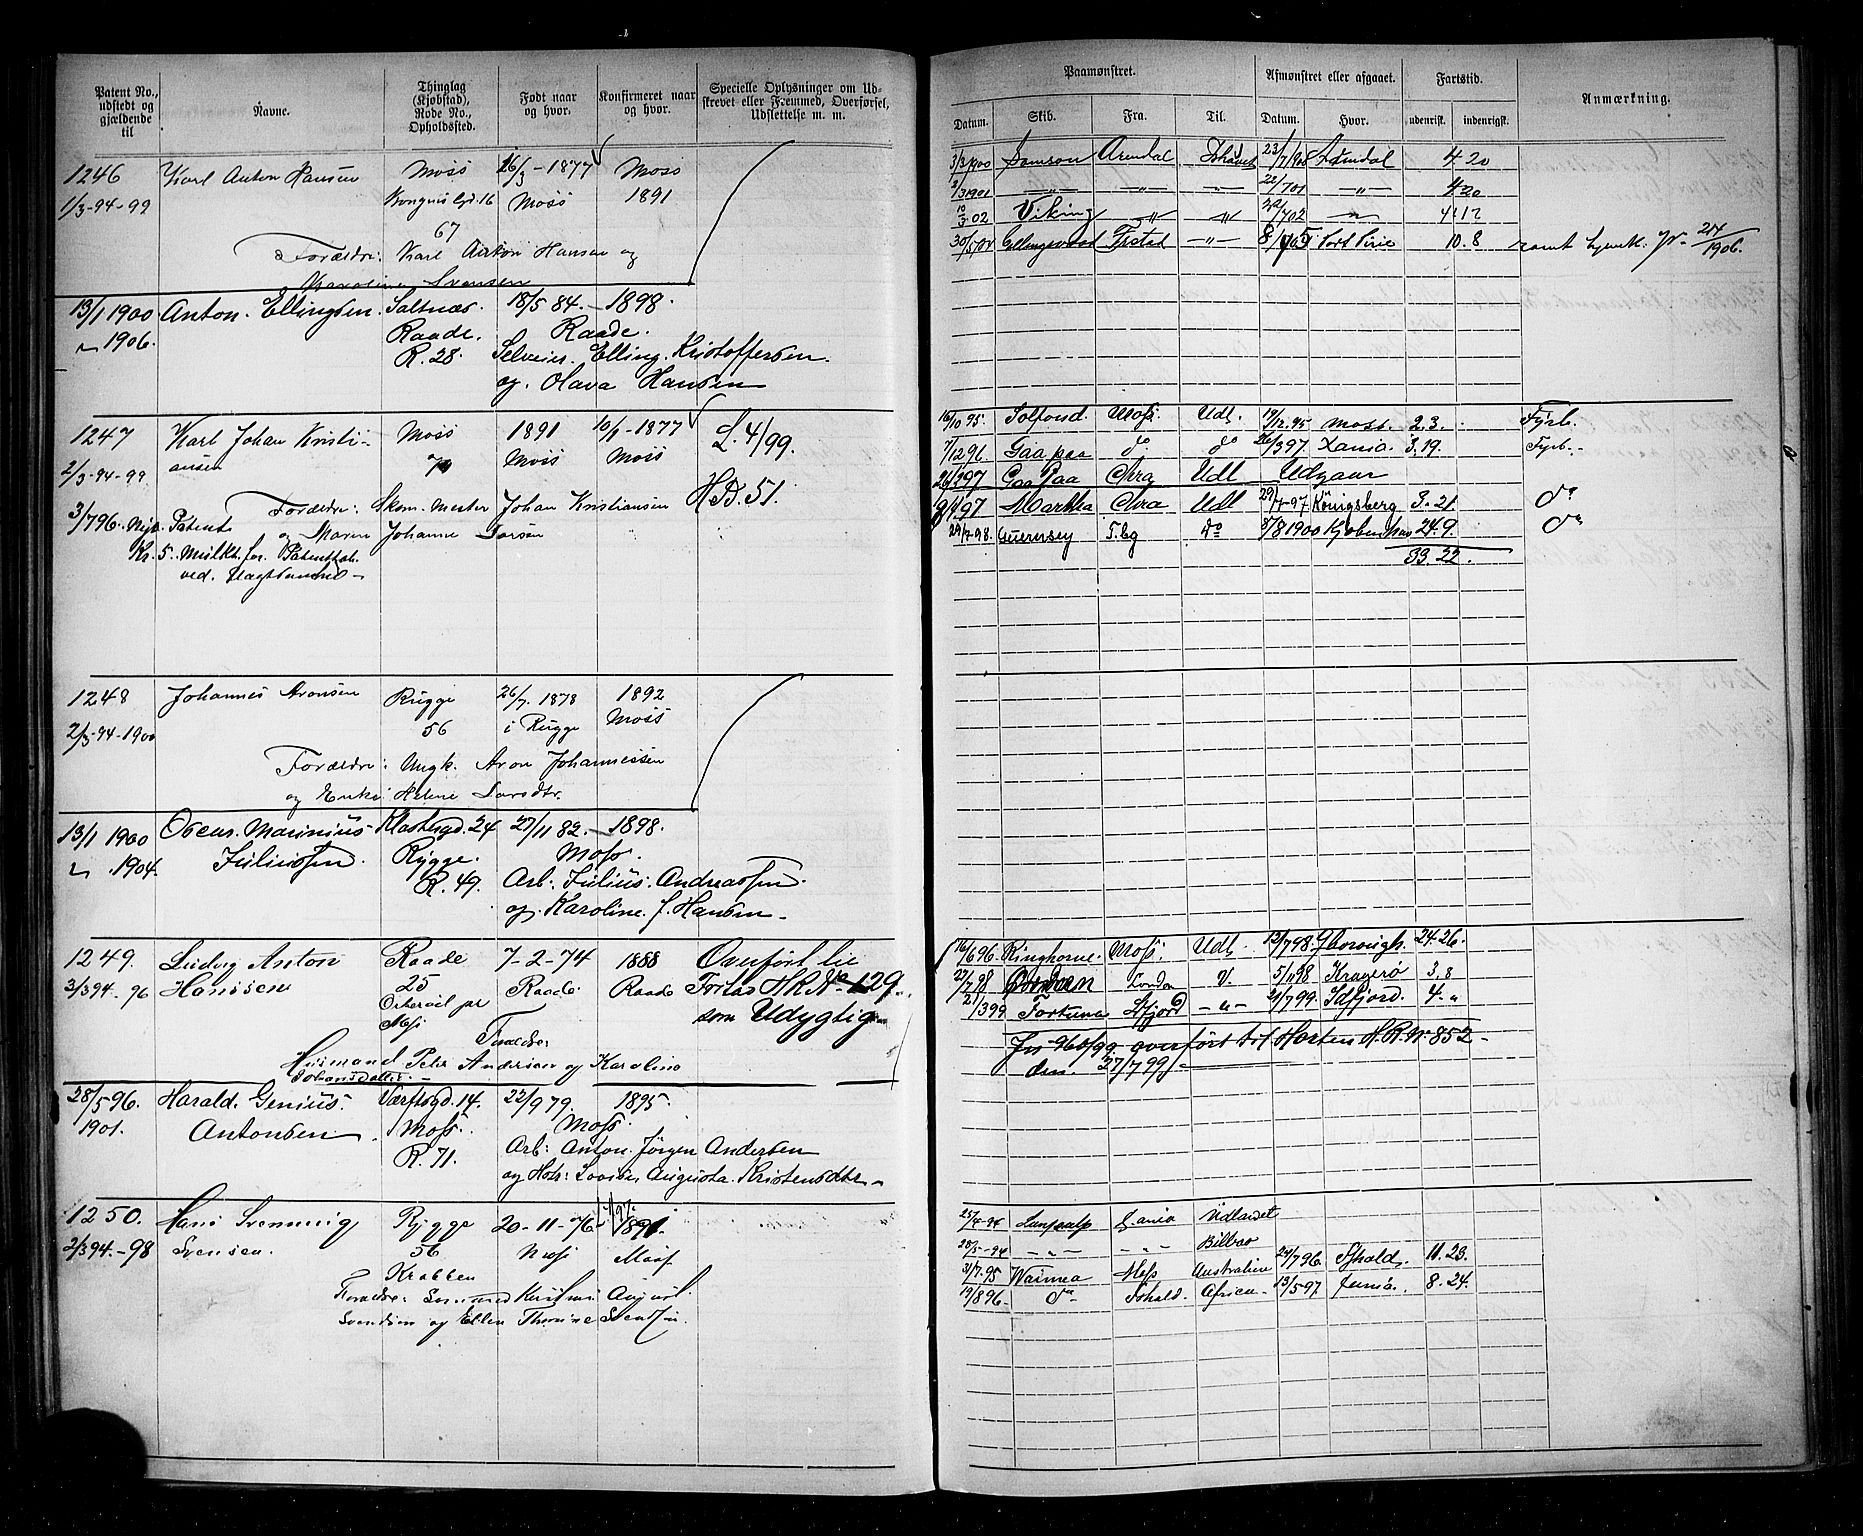 Patent No., udstedt og gjældende til
Navne.
Thinglag (Kjøbstad), Rode No., Opholdssted.
Født naar og hvor.
Konfirmeret naar og hvor.
Specielle Oplysninger om Udskrevet eller Fremmed, Overførsel, Udslettelse m. m.
1246 Karl Anton Hansen Moss 16/3-1877 Moss
1/3-94-99 Moss 1891
67
Forældre: Karl Anton Hansen og
Karoline Svensen
13/1 1900 Anton. Ellingsen. Saltnæs. 18/5 84. - 1898.
" 1906. Raade. Raade.
R. 28. Selveier. Elling. Kristoffersen.
og. Olava Hansen
1247 Karl Johan Kristi- Moss 1891 10/1-1877 L. 4/99.
2/3-94-99 ansen Moss Moss
H.D. 51.
Forældre: Skom. mester Johan Kristiansen
3/796. Nyt. Patent og Maren Johanne Larsen
Kr. 5. Mulkt. for Patenttab.
ved.
1248 Johannes Aronsen Rygge 26/7. 1878 1892
2/3-94-1900 56 i Rygge Moss
Forældre: Ungk. Aron Johannessen
og Enke Helene Larsdtr.
13/1 1900 Oscar. Marinius Klostergd. 24 27/11 82. - 1898.
" 1904. Juliussen. Rygge. Moss.
R. 49. Arb: Julius. Andreassen.
og. Karoline. J. Hansen
1249. Ludvig Anton Raade 7-2-74 1888 Overført til
3/394. 96 Hanssen 25 Raade Raade Forlas S.R. No 129.
Moss som Udygtig
Forældre
Husmand Peter Andersen og Karoline
Johansdatter.
28/5 96. Harald. Genius. Værftsgd. 14. 22/9 79. 1895.
1901. Antonsen Moss. Moss.
R. 71. Arb: Anton. Jørgen Andersen
og Hstr: Lovise Augusta. Kristensdtr.
1250. Hans Svenning Rygge 20-11-76 1891.
2/394.-98 Svensen. 56 Moss Moss
Krabben
Forældre: August
Svendsen og Ellen Thorine
Paamønstret.
Afmønstret eller afgaaet.
Fartstid.
Anmærkning.
Datum. Skib. Fra. Til. Datum. Hvor. udenrigsk. indenrigsk.
3/3 1900 Samson Arendal Ishavet 23/7 Arendal 4 20
2/3 1901 -"- -"- -"- 22/7 01 -"- 4 20
10/3 02 Viking -"- -"- 22/7 02 -"- 4 12
30/5 02 Ellingswood Fristad -"- 8/ 05 Port Pirie 10.8 1906.
16/10 95. Solfond. Moss. Udl. 19/12.95 Moss. 2.3. Fyrb.
7/12 96. Gaa paa do do 26/3 97. Xania. 3.19. Fyrb.
26/3 97 Gaa Paa Chra Udl Udgaar
97 Martha Chra Udl 29/7-97 Königsberg 3.21 do
29/7-98. Guernsey T.bg do 3/8 1900 Kjøbenhavn 24.9. do
33.22.
16/6 96. Ringhorne. Moss. Udl. 12/7 98. Gborough. 24.26.
27/7 98 London 5/11 98 Kragerø 3.8
21/3 99. Fortuna -"- 20/7 99. Idfjord. 4."
Jn 960/99 overført til Horten H.R. Nr. 852
den. 27/7 99
25/4-94 Xania Udlandet
28/5-94 -"- -"- Bilbao 24/7 96. Fhald. 11.23.
31/7. 95 Waimea Moss Australien
19/8 96. do Fhald. Africa. 13/5 97 8.24.